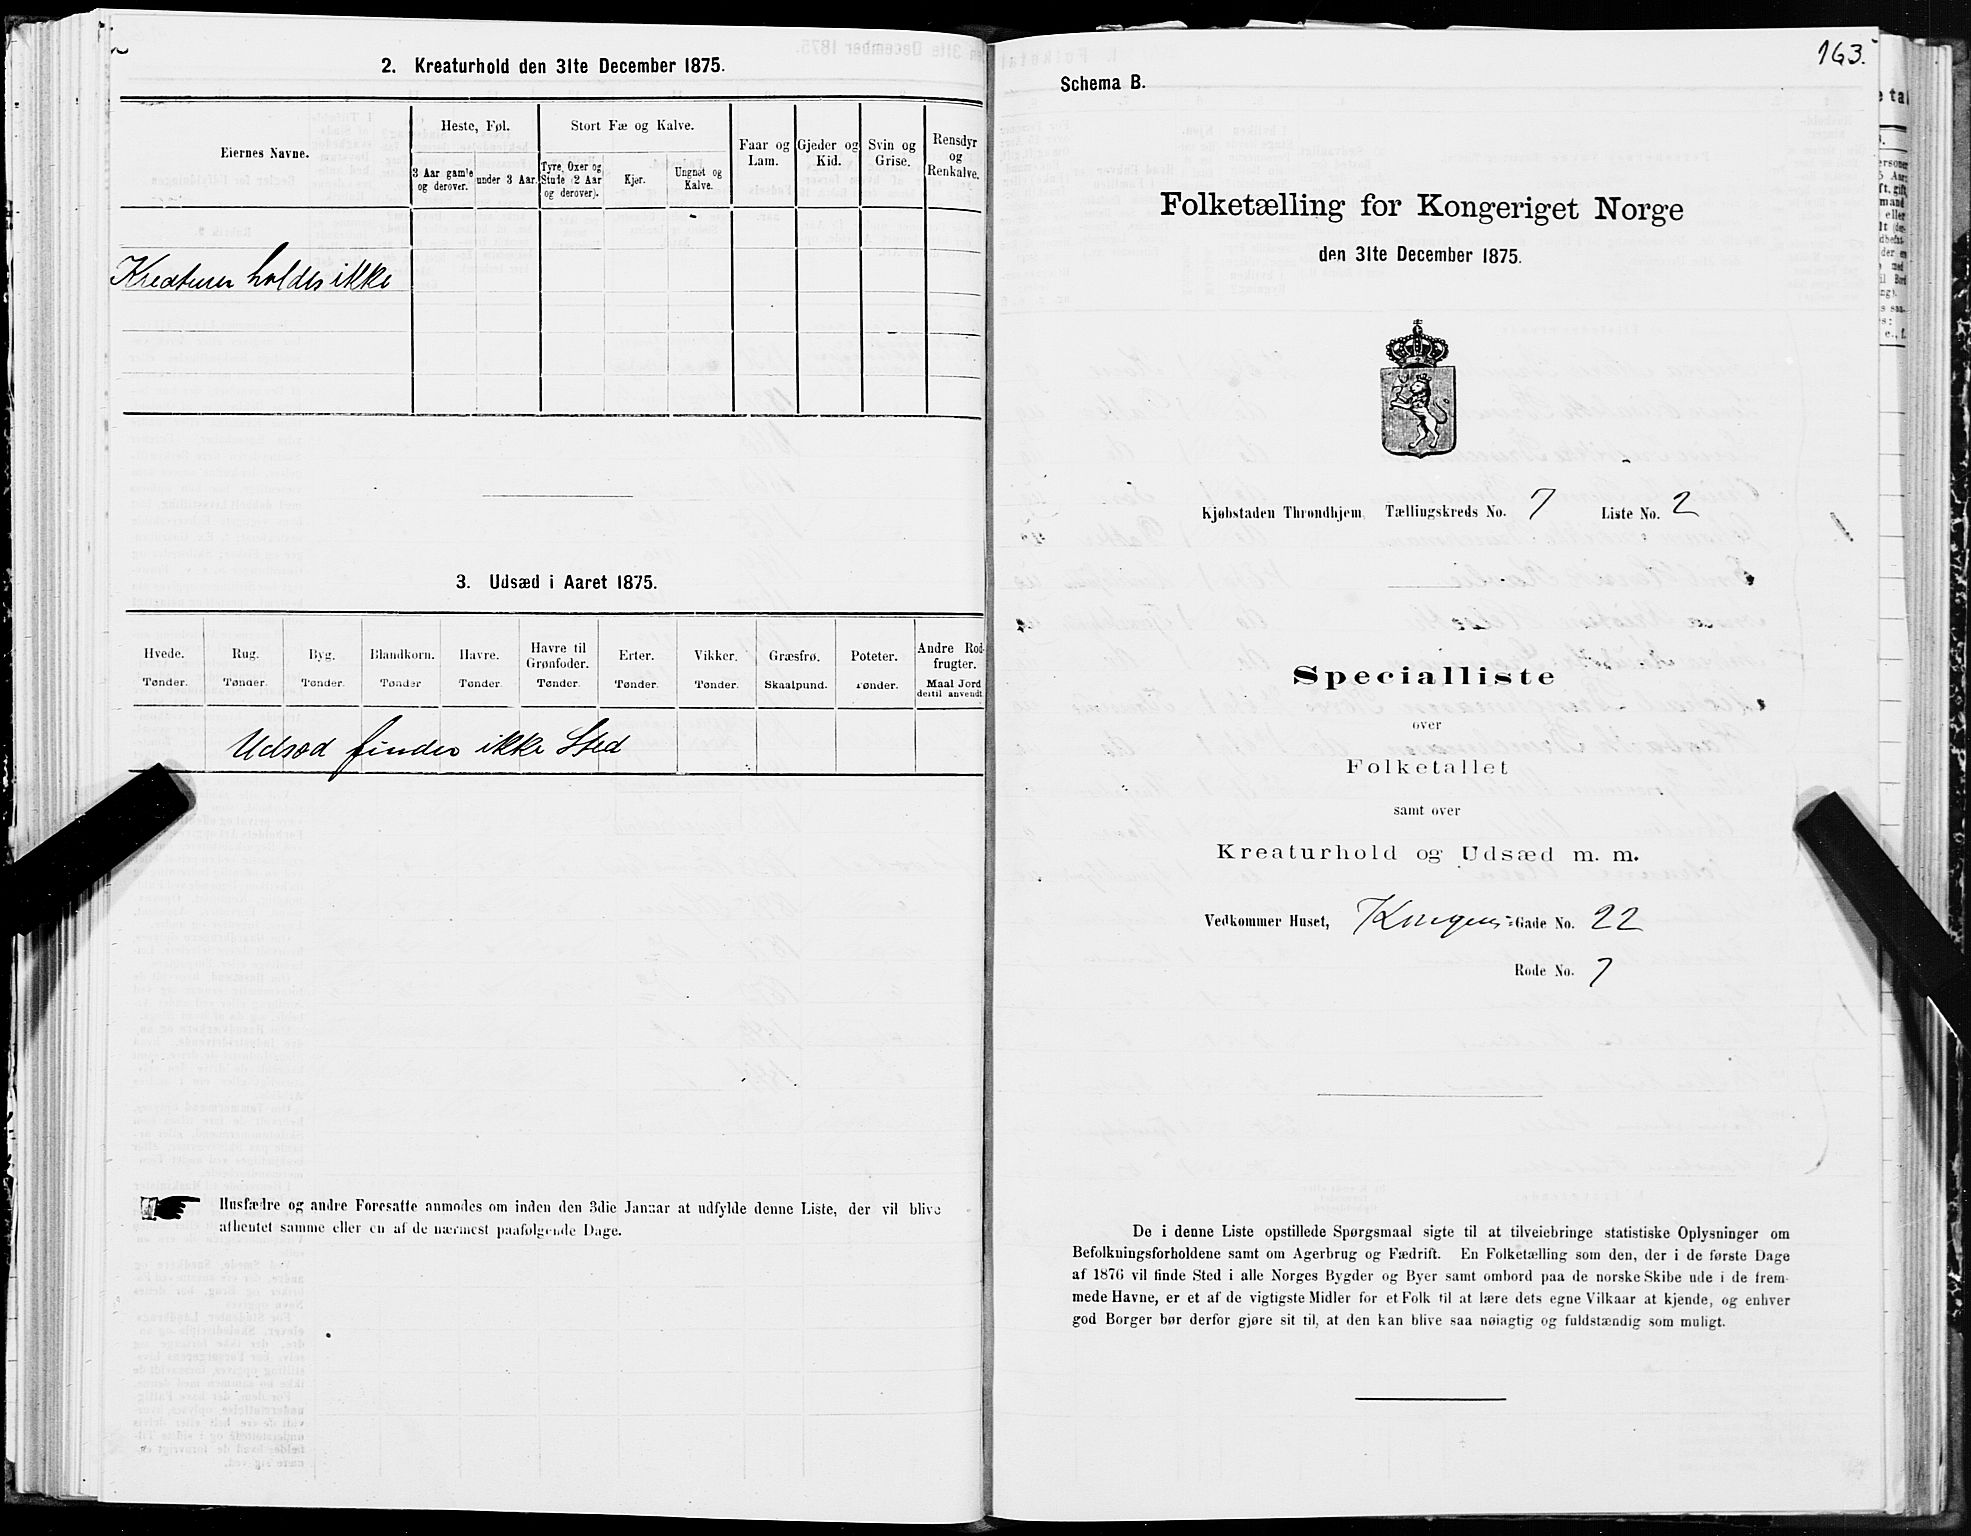 2. Kreaturhold den 31te December 1875.
Eiernes Navne.
Heste, Føl.
Stort Fæ og Kalve.
Faar og Lam.
Gjeder og Kid.
Svin og Grise.
Rensdyr og Renkalve.
3 Aar gamle og derover.
under 3 Aar.
Tyre, Oxer og Stude (2 Aar og derover).
Kjør.
Ungnøt og Kalve.
Kreaturer holdes ikke
3. Udsæd i Aaret 1875.
Hvede. Rug. Byg. Blandkorn. Havre. Havre til Grønfoder. Erter. Vikker. Græsfrø. Poteter. Andre Rodfrugter.
Tønder. Tønder. Tønder. Tønder Tønder. Tønder. Tønder. Tønder. Skaalpund. Tønder. Maal Jord dertil anvendt.
Udsæd finder ikke Sted
Husfædre og andre Foresatte anmodes om inden den 3die Januar at udfylde denne Liste, der vil blive
afhentet samme eller en af de nærmest paafølgende Dage.
163.
Schema B.
Folketælling for Kongeriget Norge
den 31te December 1875.
Kjøbstaden Throndhjem, Tællingskreds No. 7 Liste No. 2
Specialliste
over
Folketallet
samt over
Kreaturhold og Udsæd m. m.
Vedkommer Huset, Kongens-Gade No. 22
Rode No. 7
De i denne Liste opstillede Spørgsmaal sigte til at tilveiebringe statistiske Oplysninger om
Befolkningsforholdene samt om Agerbrug og Fædrift. En Folketælling som den, der i de første Dage
af 1876 vil finde Sted i alle Norges Bygder og Byer samt ombord paa de norske Skibe ude i de frem-
mede Havne, er et af de vigtigste Midler for et Folk til at lære dets egne Vilkaar at kjende, og enhver
god Borger bør derfor gjøre sit til, at den kan blive saa nøiagtig og fuldstændig som muligt.